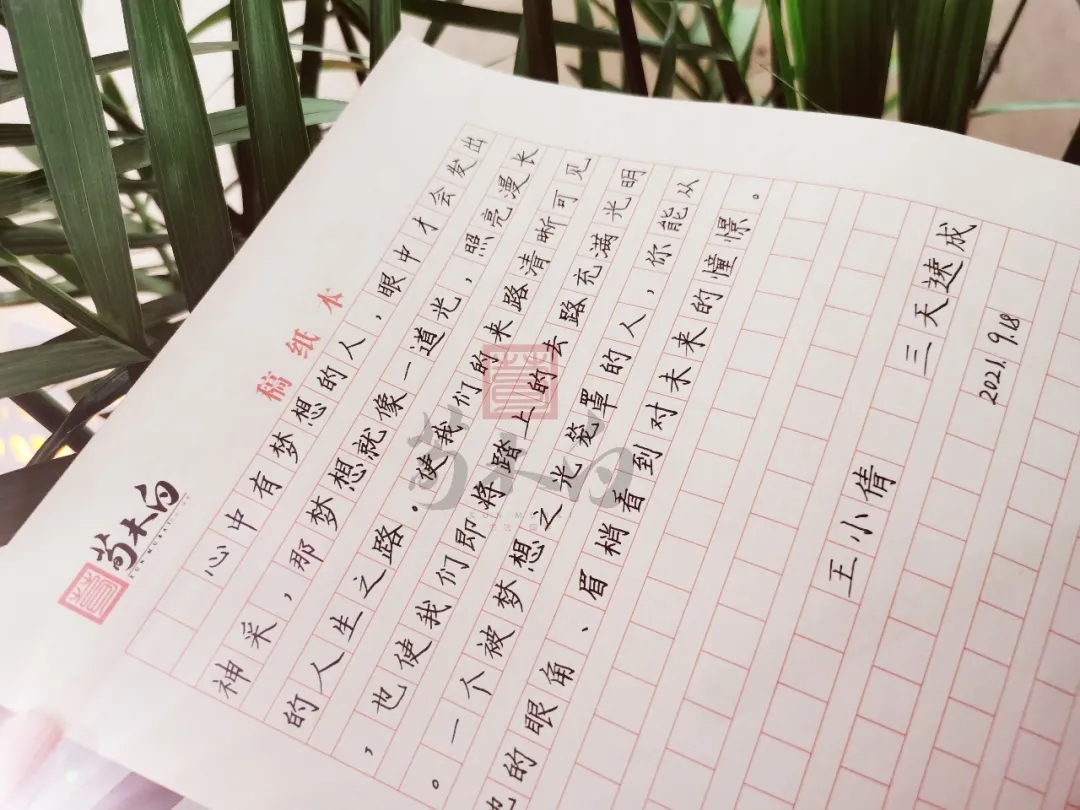 荀木白
稿纸本
心中有梦想的人，眼中才会发出
神采，那梦想就像一道光，照亮漫长
的人生之路。使我们的来路清晰可见
，也使我们即将踏上的去路充满光明
。一个被梦想之光笼罩的人，你能从
他的眼角、眉梢看到对未来的憧憬。
王小倩 三天速成
2021.9.18
荀木白